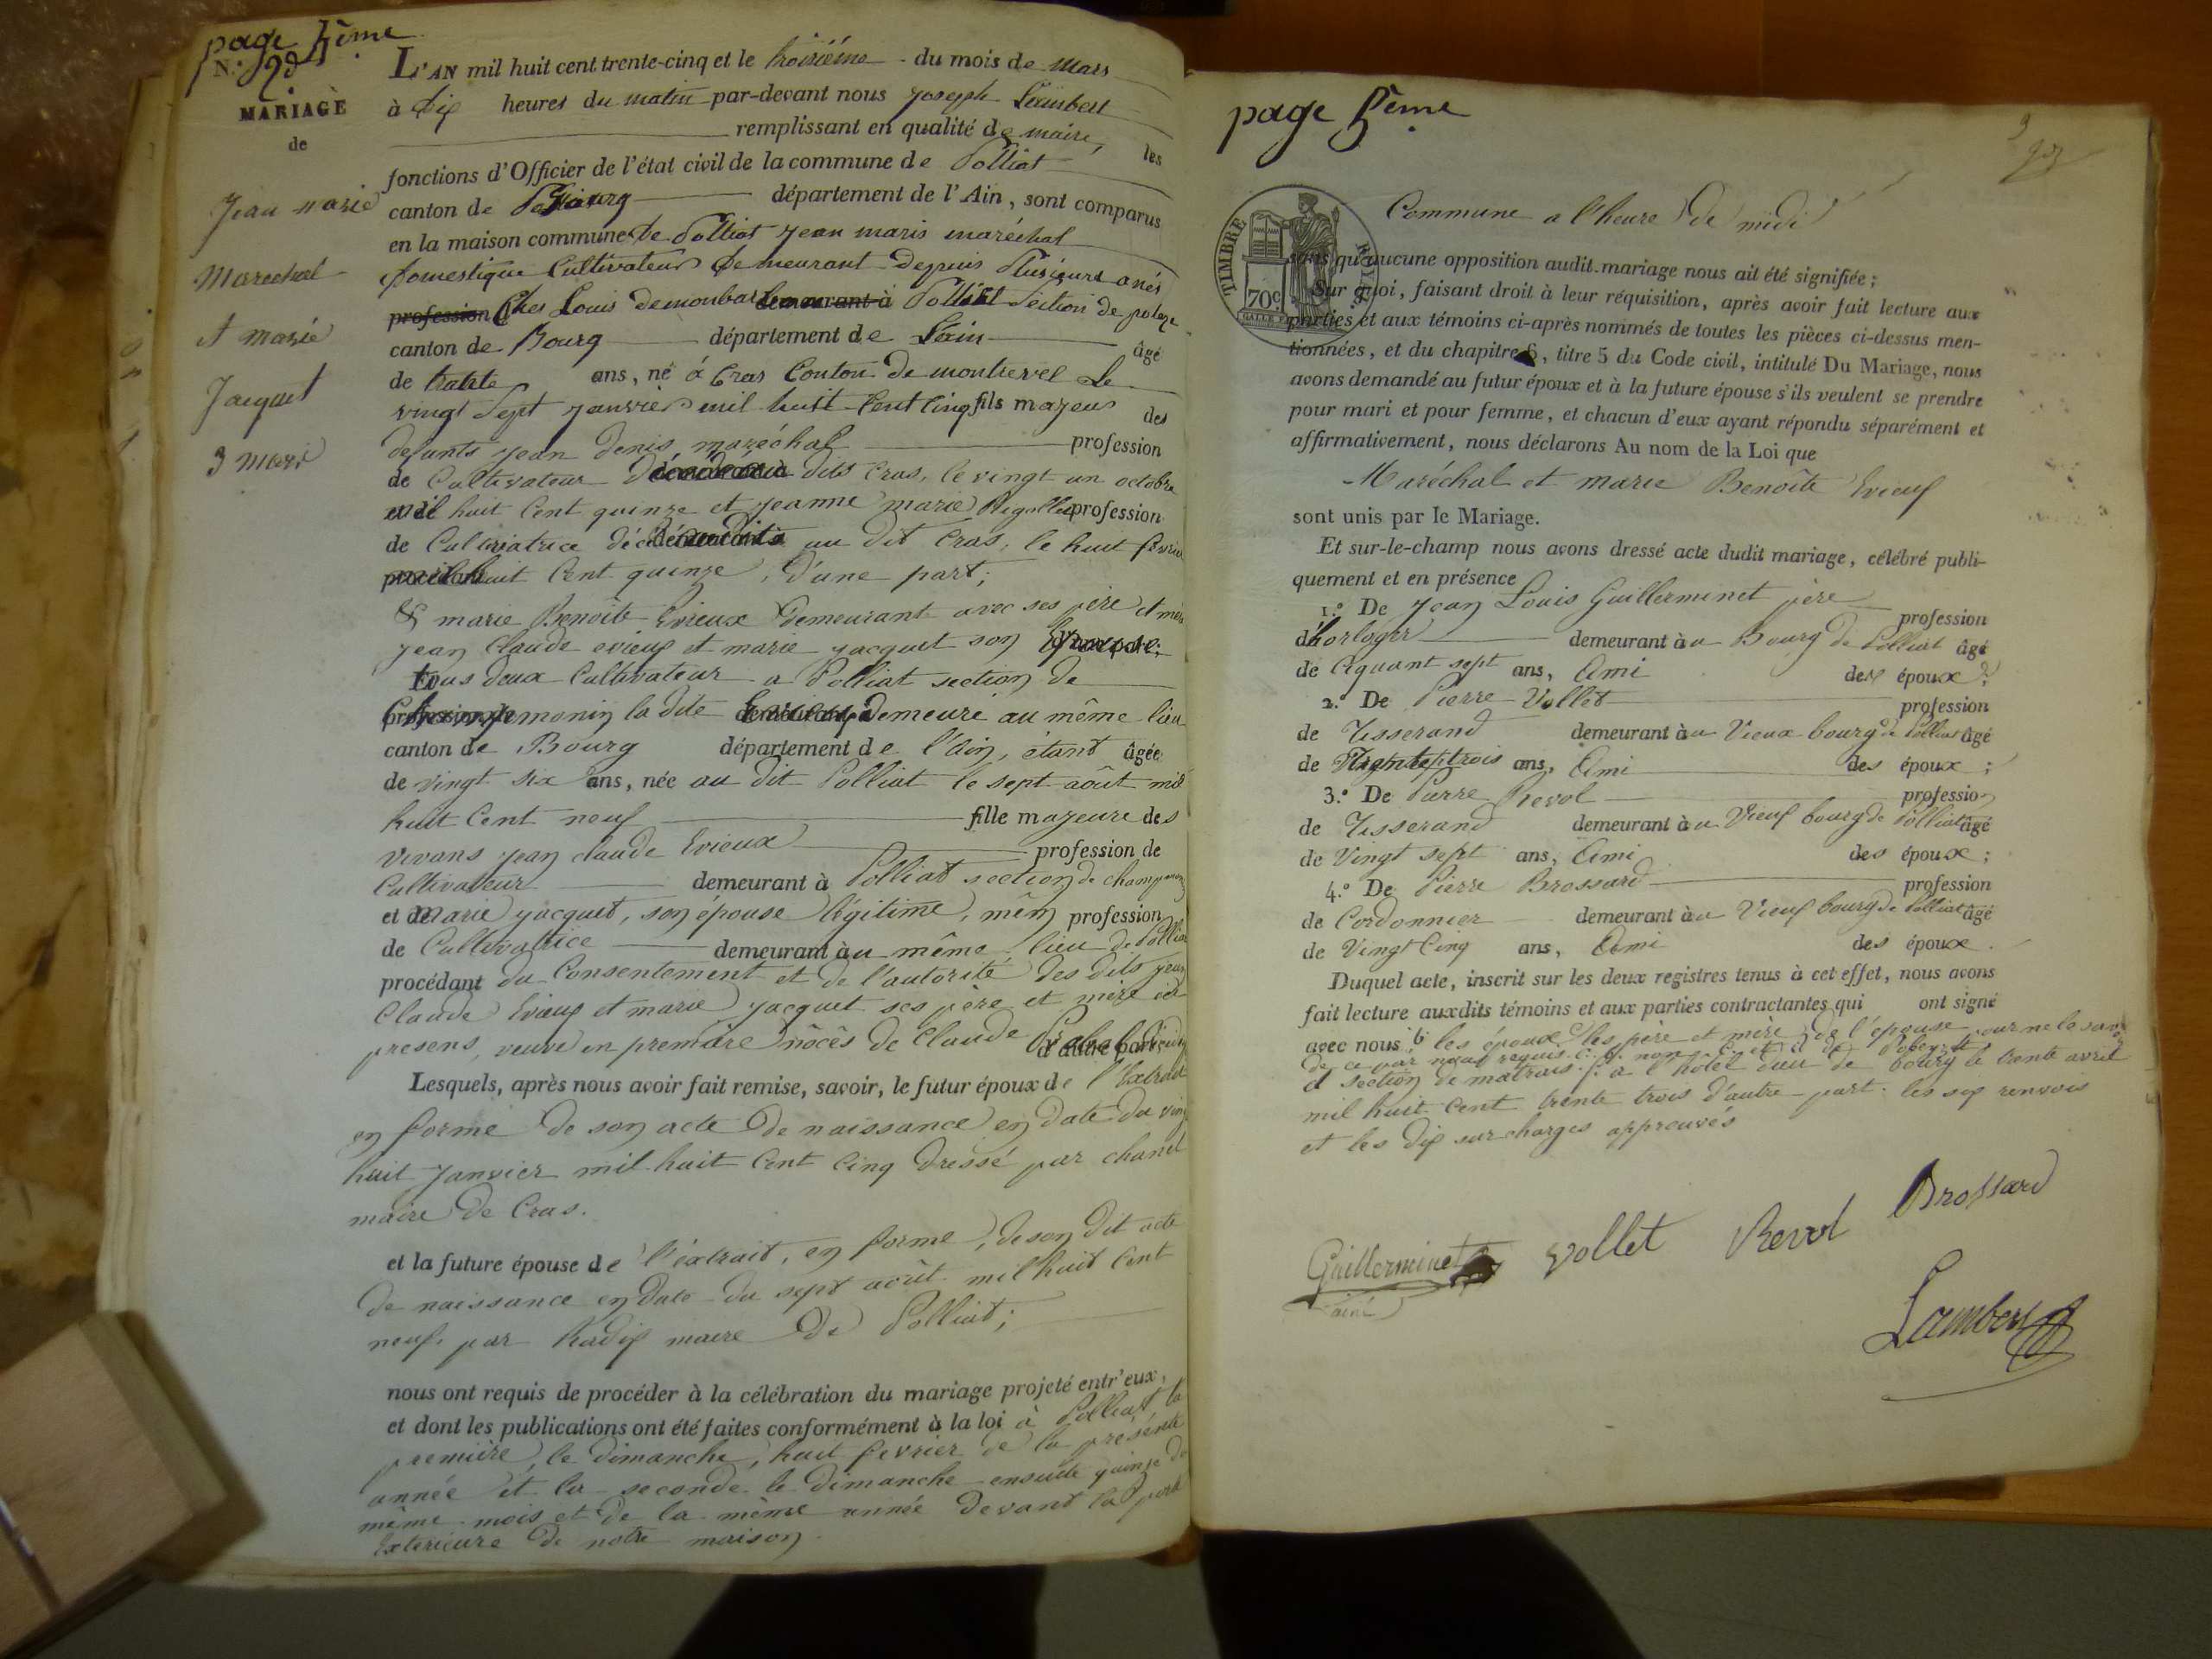 page 5ème
N.° 9d
MARIAGE
de
Jean marie
Marechal
et marie
Jacquet
3 mars
L'AN mil huit cent trente-cinq et le troisième du mois de Mars
à dix heures du matin par-devant nous Joseph Lambert
remplissant en qualité de maire, les
fonctions d'Officier de l'état civil de la commune de Polliat
canton de Bourg département de l'Ain, sont comparus
en la maison commune de Polliat Jean marie maréchal
domestique Cultivateur demeurant depuis Plusieurs anés
profession Chez Louis demoubar demeurant à Polliat Section de
canton de Bourg département de Lain âgé
de trante ans, né à Cras Conton de montrevel Le
vingt Sept Janvier mil huit Cent Cinq fils majeur des
defunts Jean Denis maréchal profession
de Cultivateur dits Cras, le vingt un octobre
mil huit Cent quinze et jeanne marie profession
de Cultivatrice au dit Cras, le huit fevrier
mil huit Cent quinze, d'une part;
& marie Benoîte Evieux demeurant avec ses père et mère
jean Claude evieux et marie jacquet son Epouse;
tous deux Cultivateur a Polliat section de
la dite demeure au même lieu
canton de Bourg département de l'Ain, étant âgée
de vingt six ans, née au dit Polliat le sept août mil
huit Cent neuf fille majeure des
vivans jean claude Evieux profession de
Cultivateur demeurant à Polliat section de
et de marie jacquet, son épouse légitime, profession
de Cultivatrice demeurant au même lieu de Polliat
procédant du Consentement et de l'autorité des dits jean
Claude Evieux et marie jacquet ses père et mère ici
presens, veuve en première nôces de Claude d'autre part;
Lesquels, après nous avoir fait remise, savoir, le futur époux de l'Extrait
en forme de son acte de naissance en date du vingt
huit janvier mil huit Cent Cinq dressé par chanel
maire de Cras.
et la future épouse de l'extrait, en forme, de son dit acte
de naissance en date du sept août mil huit Cent
neuf, par maire de Polliat;
nous ont requis de procéder à la célébration du mariage projeté entr'eux,
et dont les publications ont été faites conformément à la loi à Polliat, la
première, le dimanche, huit fevrier de la présente
année et la seconde le dimanche ensuite quinze du
même mois et de la même année devant la porte
Exterieure de notre maison
page 5ème
TIMBRE ROYAL
70c
Commune a l'heure de midi
sans qu'aucune opposition audit mariage nous ait été signifiée;
Sur quoi, faisant droit à leur réquisition, après avoir fait lecture aux
parties et aux témoins ci-après nommés de toutes les pièces ci-dessus men-
tionnées, et du chapitre 6, titre 5 du Code civil, intitulé Du Mariage, nous
avons demandé au futur époux et à la future épouse s'ils veulent se prendre
pour mari et pour femme, et chacun d'eux ayant répondu séparément et
affirmativement, nous déclarons Au nom de la Loi que
Maréchal et marie Benoîte Evieux
sont unis par le Mariage.
Et sur-le-champ nous avons dressé acte dudit mariage, célébré publi-
quement et en présence
1.° De Jean Louis Guillerminet père profession
d'horloger demeurant au Bourg de Polliat âgé
de Ciquant sept ans, Ami des époux;
2.° De Pierre Vollet profession
de Tisserand demeurant au Vieux bourg de Polliat âgé
de Trente trois ans, Ami des époux;
3.° De Pierre Revol profession
de Tisserand demeurant au Vieux bourg de Polliat âgé
de Vingt sept ans, Ami des époux;
4.° De Pierre Brossard profession
de Cordonnier demeurant au Vieux bourg de Polliat âgé
de Vingt Cinq ans, Ami des époux.
Duquel acte, inscrit sur les deux registres tenus à cet effet, nous avons
fait lecture auxdits témoins et aux parties contractantes qui ont signé
avec nous les époux les père et mère de l'épouse pour ne le savoir
de ce par nous requis.
section de a l'hôtel dieu de bourg le trente avril
mil huit Cent trente trois d'autre part. les six renvois
et les dix surcharges approuvés
Guillerminet
ainé
Vollet
Revol
Brossard
Lambert